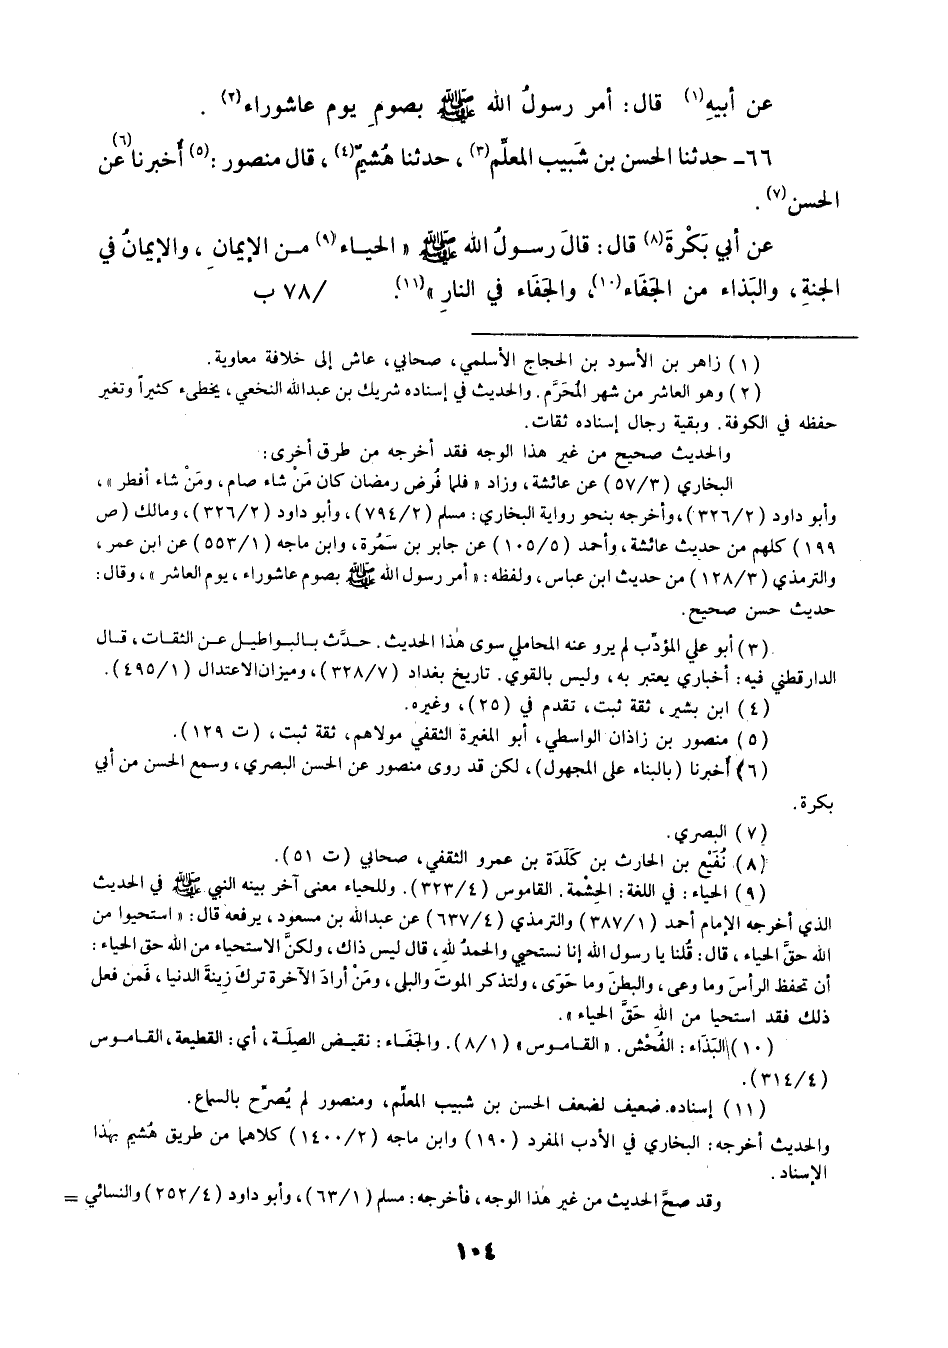 عن أبيهِ(١) قال: أمر رسولُ الله ﷺ بصومِ يوم عاشوراء(٢) .
٦٦ـ حدثنا الحسن بن شَبيب المعلِّم(٣)، حدثنا هُشيمٌ(٤)، قال منصور :(٥) أُخبرنا(٦) عن
الحسن(٧) .
عن أبي بَكْرةَ(٨) قال: قالَ رسولُ الله ﷺ « الحياء(٩) من الإيمانِ ، والإيمانُ في
الجنةِ، والبَذاء من الجَفَاء(١٠)، والجَفَاء في النارِ »(١١). /٧٨ ب
(١) زاهر بن الأسود بن الحجاج الأسلمي، صحابي، عاش إلى خلافة معاوية.
(٢) وهو العاشر من شهر المُحَرَّم. والحديث في إسناده شريك بن عبدالله النخعي، يخطىء كثيراً وتغير
حفظه في الكوفة. وبقية رجال إسناده ثقات.
والحديث صحيح من غير هذا الوجه فقد أخرجه من طرق أخرى:
البخاري (٥٧/٣) عن عائشة، وزاد « فلما فُرض رمضان كان مَنْ شاء صام، ومَنْ شاء أفطر »،
وأبو داود (٣٢٦/٢)،وأخرجه بنحو رواية البخاري: مسلم (٧٩٤/٢)، وأبو داود (٣٢٦/٢)، ومالك (ص
١٩٩) كلهم من حديث عائشة، وأحمد (١٠٥/٥) عن جابر بن سَمُرة، وابن ماجه (٥٥٣/١) عن ابن عمر،
والترمذي (١٢٨/٣) من حديث ابن عباس، ولفظه: « أمر رسول الله ﷺ بصوم عاشوراء، يوم العاشر »، وقال:
حديث حسن صحيح.
(٣) أبو علي المؤدّب لم يرو عنه المحاملي سوى هٰذا الحديث. حدَّث بالبواطيل عن الثقات، قال
الدارقطني فيه: أخباري يعتبر به، وليس بالقوي. تاريخ بغداد (٣٢٨/٧)، وميزان الاعتدال (٤٩٥/١).
(٤) ابن بشير، ثقة ثبت، تقدم في (٢٥)، وغيره.
(٥) منصور بن زاذان الواسطي، أبو المغيرة الثقفي مولاهم، ثقة ثبت، (ت ١٢٩).
(٦) أُخبرنا (بالبناء على المجهول)، لكن قد روى منصور عن الحسن البصري، وسمع الحسن من أبي
بكرة.
(٧) البصري.
(٨) نُفَيْع بن الحارث بن كَلَدَة بن عمرو الثقفي، صحابي (ت ٥١).
(٩) الحياء: في اللغة: الحِشْمة. القاموس (٣٢٣/٤). وللحياء معنى آخر بينه النبي ﷺ في الحديث
الذي أخرجه الإمام أحمد (٣٨٧/١) والترمذي (٦٣٧/٤) عن عبدالله بن مسعود، يرفعه قال: « استحيوا من
الله حقَّ الحياء، قال: قُلنا يا رسول الله إنا نستحي والحمدُ لله، قال ليس ذاك، ولكنَّ الاستحياء من الله حق الحياء:
أن تحفظ الرأسَ وما وعى، والبطنَ وما حَوَى، ولتذكر الموتَ والبلى، ومَنْ أرادَ الآخرة تركَ زِينةَ الدنيا، فَمن فعل
ذلك فقد استحيا من اللهِ حَقَّ الحياء ».
(١٠) البَذَاء: الفُحْش. « القاموس » (٨/١). والجَفَاء: نقيض الصِلَة، أي: القطيعة، القاموس
(٣١٤/٤).
(١١) إسناده ضعيف لضعف الحسن بن شبيب المعلِّم، ومنصور لم يُصرِّح بالسماع.
والحديث أخرجه: البخاري في الأدب المفرد (١٩٠) وابن ماجه (١٤٠٠/٢) كلاهما من طريق هُشيم بهٰذا
الإسناد.
وقد صحَّ الحديث من غير هٰذا الوجه، فأخرجه: مسلم (٦٣/١)، وأبو داود (٢٥٢/٤) والنسائي =
١٠٤